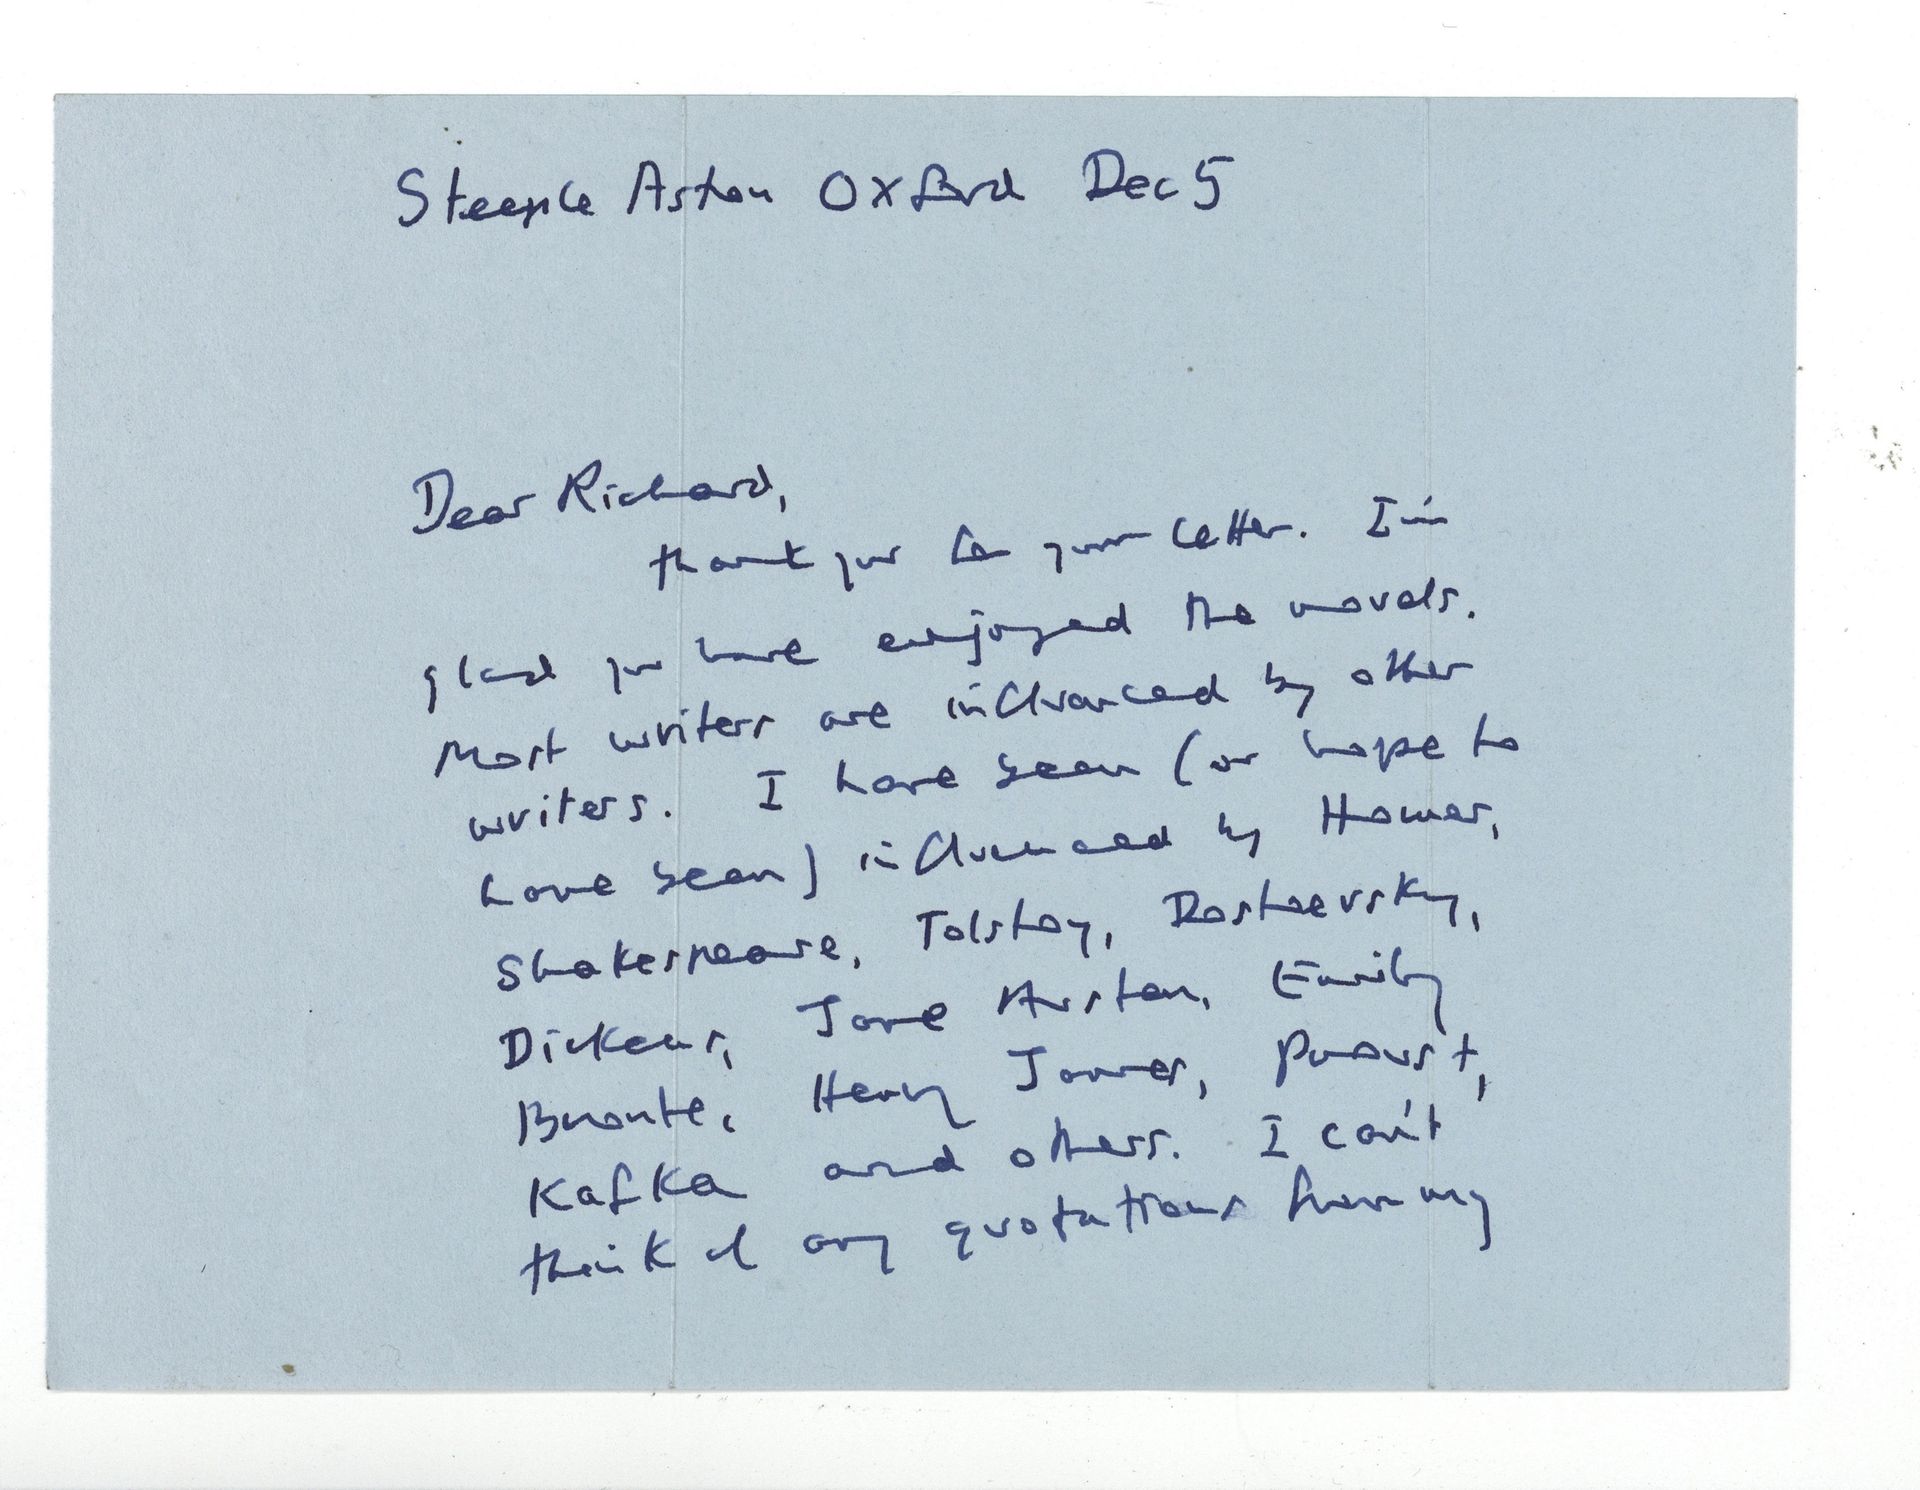 Steeple Aston Oxford Dec 5
Dear Richard,
thank you for your letter. I'm
glad you have enjoyed the novels.
Most writers are influenced by other
writers. I have been (or hope to
have been) influenced by Homer,
Shakespeare, Tolstoy, Dostoevsky,
Dickens, Jane Austen, Emily
Bronte, Henry James, Proust,
Kafka and others. I can't
think of any quotations from my